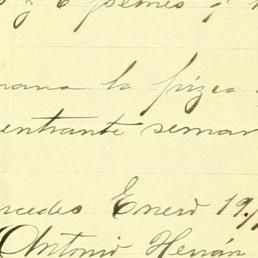 y 6 pemes y
la pizca
entrante seman
rcedes Enero 19,
Antonio Hernán